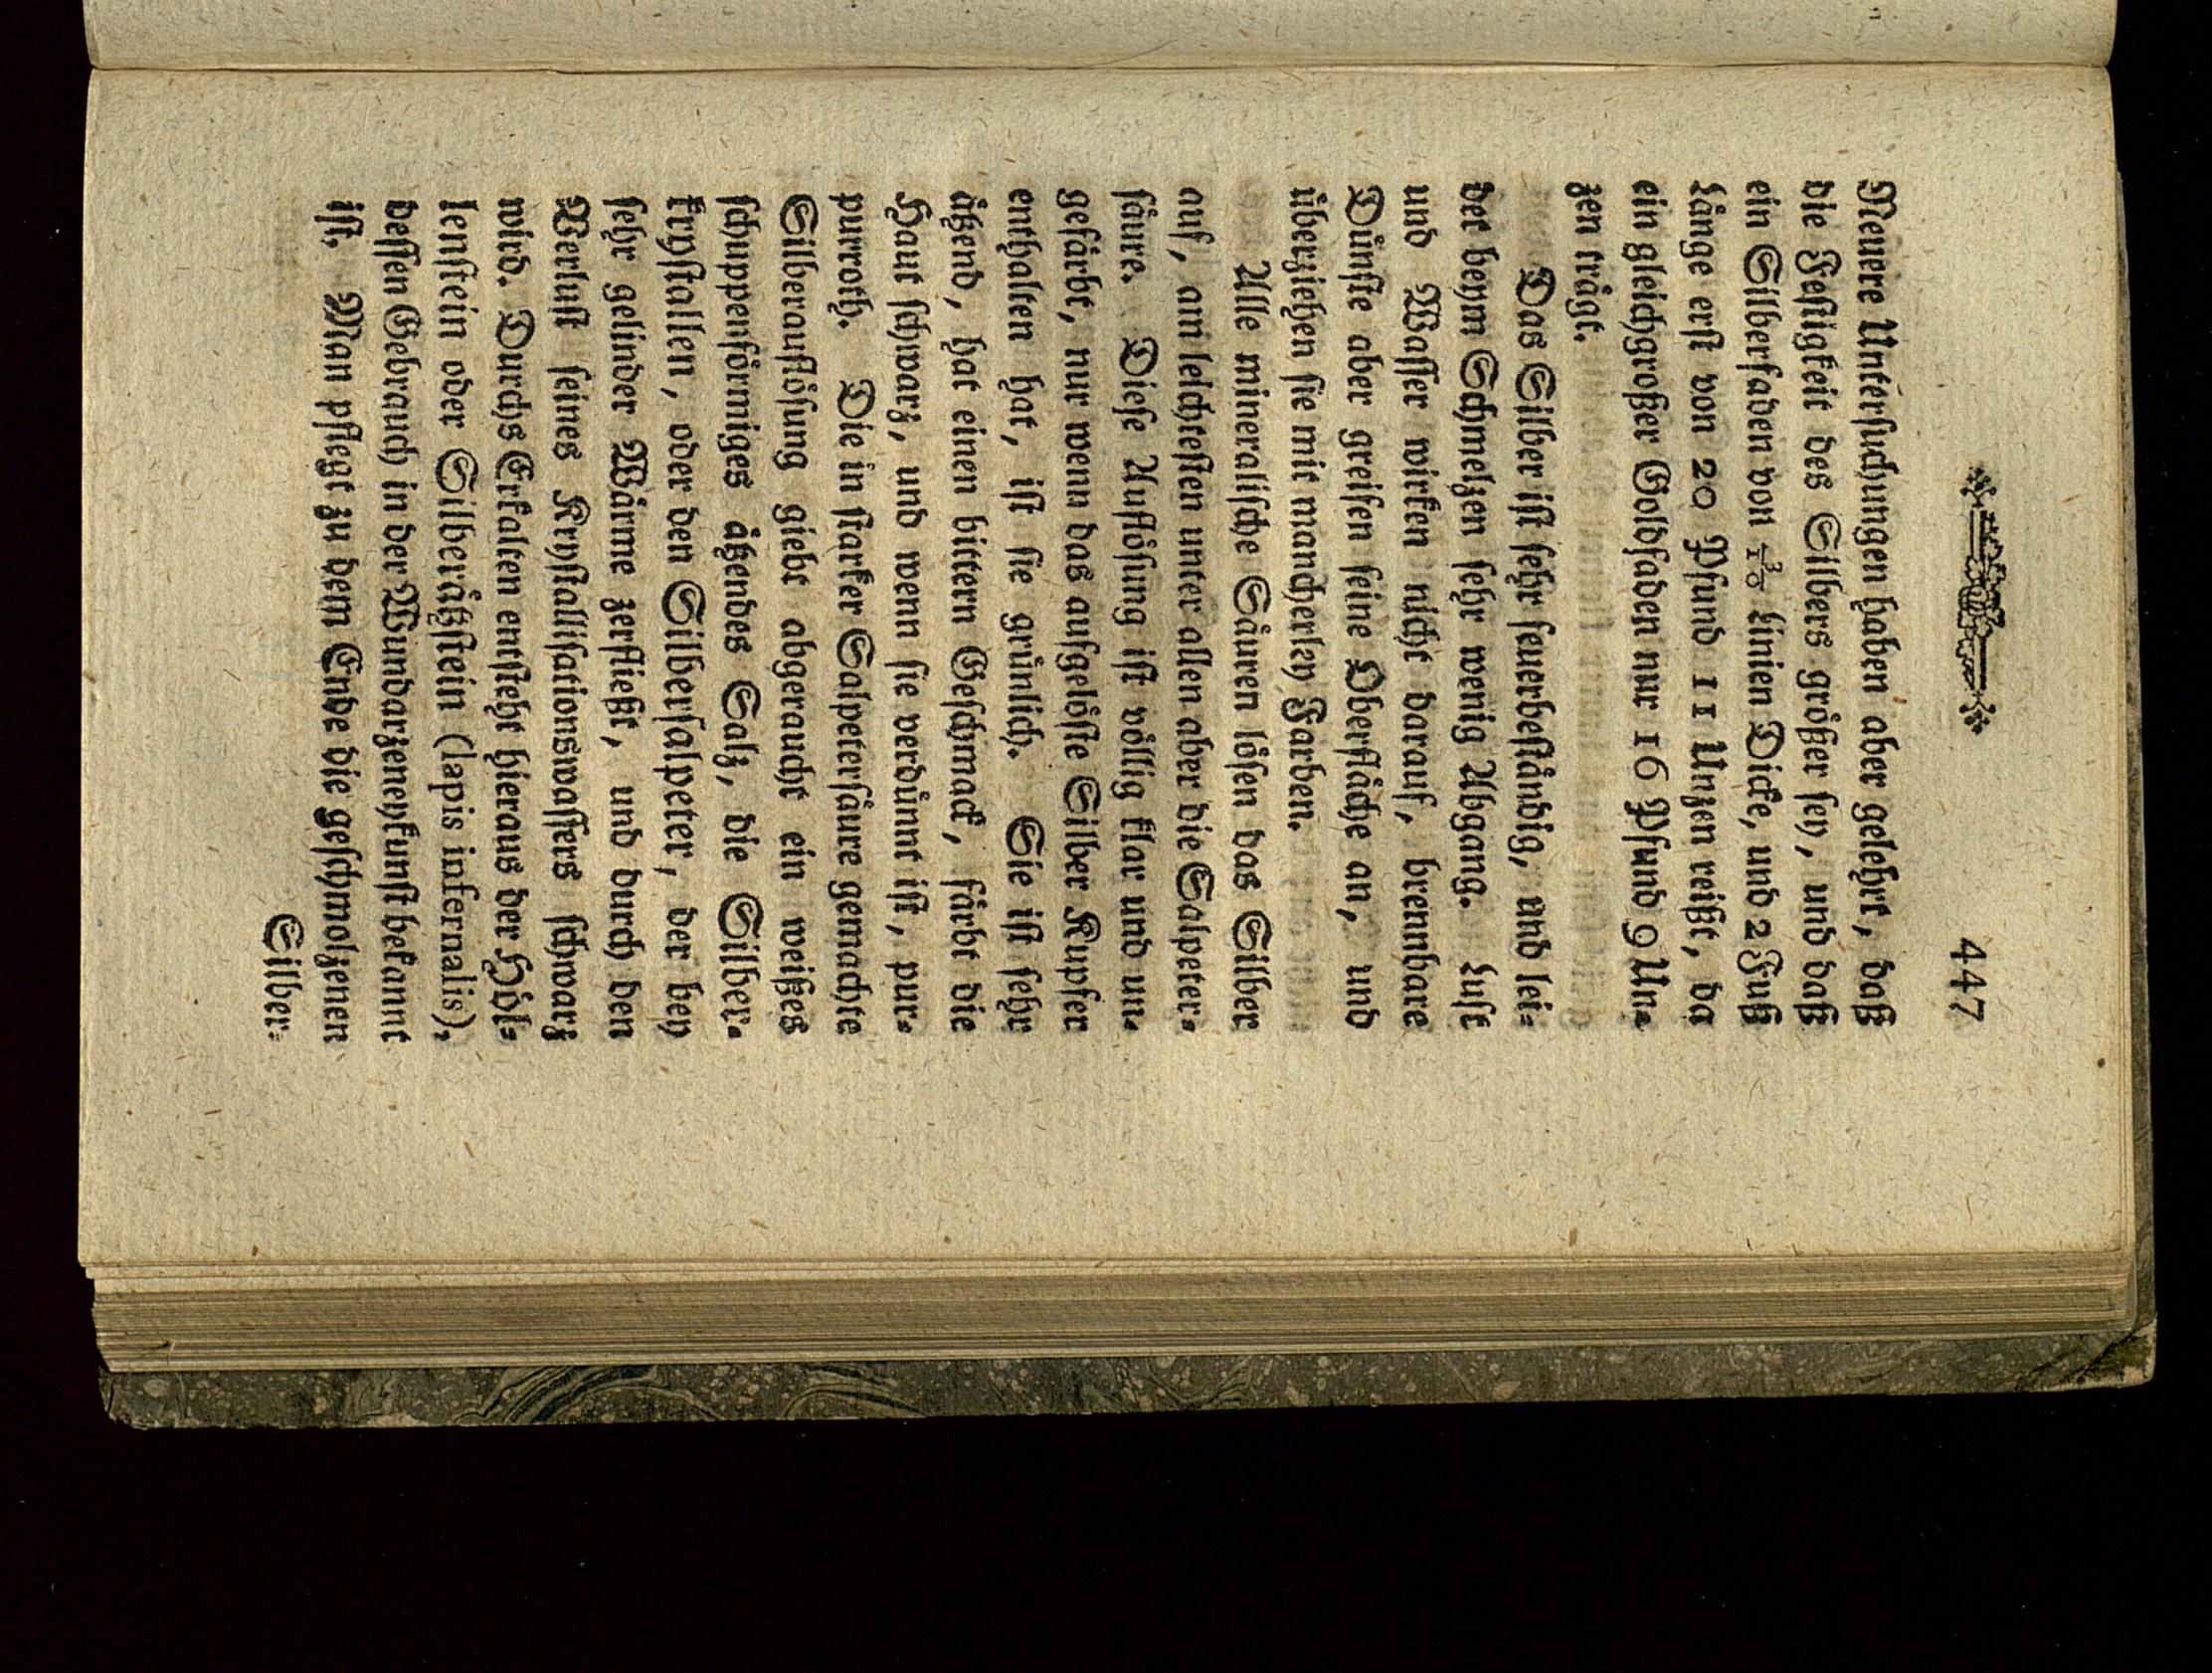 447
Neuere Unterſuchungen haben aber gelehrt, daß
die Feſtigkeit des Silbers größer ſey, und daß
ein Silberfaden von 3/10 Linien Dicke, und 2 Fuß
Länge erſt von 20 Pfund 11 Unzen reißt, da
ein gleichgroßer Goldfaden nur 16 Pfund 9 Un-
zen trägt.
Das Silber iſt ſehr feuerbeſtändig, und lei-
det beym Schmelzen ſehr wenig Abgang. Luft
und Waſſer wirken nicht darauf, brennbare
Dünſte aber greifen ſeine Oberfläche an, und
überziehen ſie mit mancherley Farben.
Alle mineraliſche Säuren löſen das Silber
auf, am leichteſten unter allen aber die Salpeter-
ſäure. Dieſe Auflöſung iſt völlig klar und un-
gefärbt, nur wenn das aufgelöſte Silber Kupfer
enthalten hat, iſt ſie grünlich. Sie iſt ſehr
ätzend, hat einen bittern Geſchmack, färbt die
Haut ſchwarz, und wenn ſie verdünnt iſt, pur-
purroth. Die in ſtarker Salpeterſäure gemachte
Silberauflöſung giebt abgeraucht ein weißes
ſchuppenförmiges ätzendes Salz, die Silber-
kryſtallen, oder den Silberſalpeter, der bey
ſehr gelinder Wärme zerfließt, und durch den
Verluſt ſeines Kryſtalliſationswaſſers ſchwarz
wird. Durchs Erkalten entſteht hieraus der Höl-
lenſtein oder Silberätzſtein (lapis infernalis),
deſſen Gebrauch in der Wundarzeneykunſt bekannt
iſt. Man pflegt zu dem Ende die geſchmolzenen
Silber-